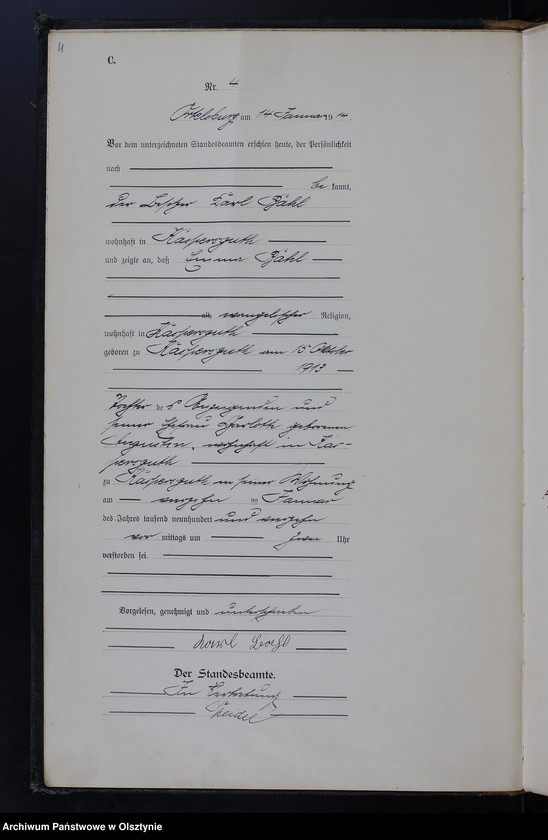 4
C.
Nr. 4
Ortelsburg am 14 Januar 1914.
Vor dem unterzeichneten Standesbeamten erschien heute, der Persönlichkeit
nach
be kannt,
der Besitzer Karl Bahl
wohnhaft in Käspersguth
und zeigte an, daß Emma Bahl
alt, evangelischer Religion,
wohnhaft in Käspersguth
geboren zu Käspersguth am 15 Oktober
1913
Tochter des Anzeigenden und
seiner Ehefrau geborenen
Augustin, wohnhaft in Käs-
persguth
zu Käspersguth in seiner Wohnung
am vierzehn im Januar
des Jahres tausend neunhundert und vierzehn
vor mittags um zwei Uhr
verstorben sei.
Vorgelesen, genehmigt und unterschrieben
Karl Bahl
Der Standesbeamte.
In Vertretung
Archiwum Państwowe w Olsztynie